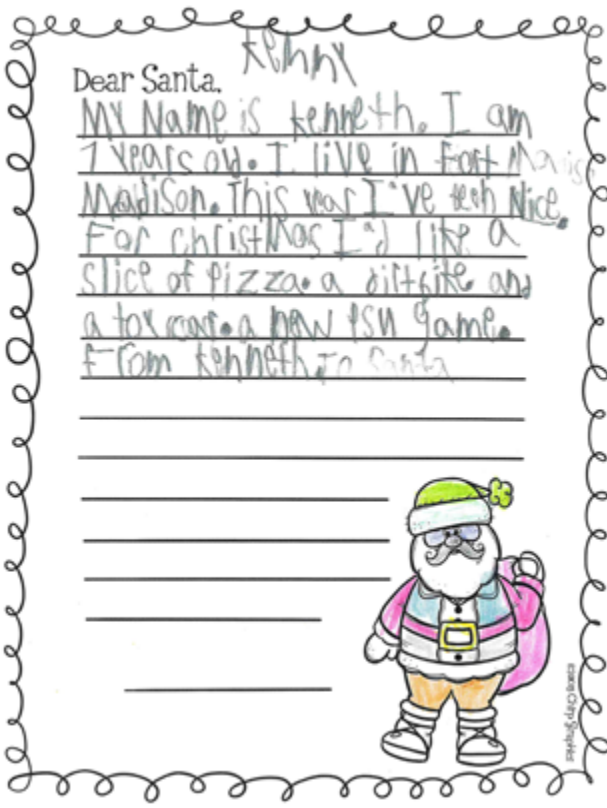 Kenny
Dear Santa,
My Name is kenneth. I am
7 years old. I live in Fort
Madison. This year I've been Nice.
For christmas I'd like a
slice of pizza. a dirtbike and
a toy car. a new PS4 game.
From kenneth To Santa